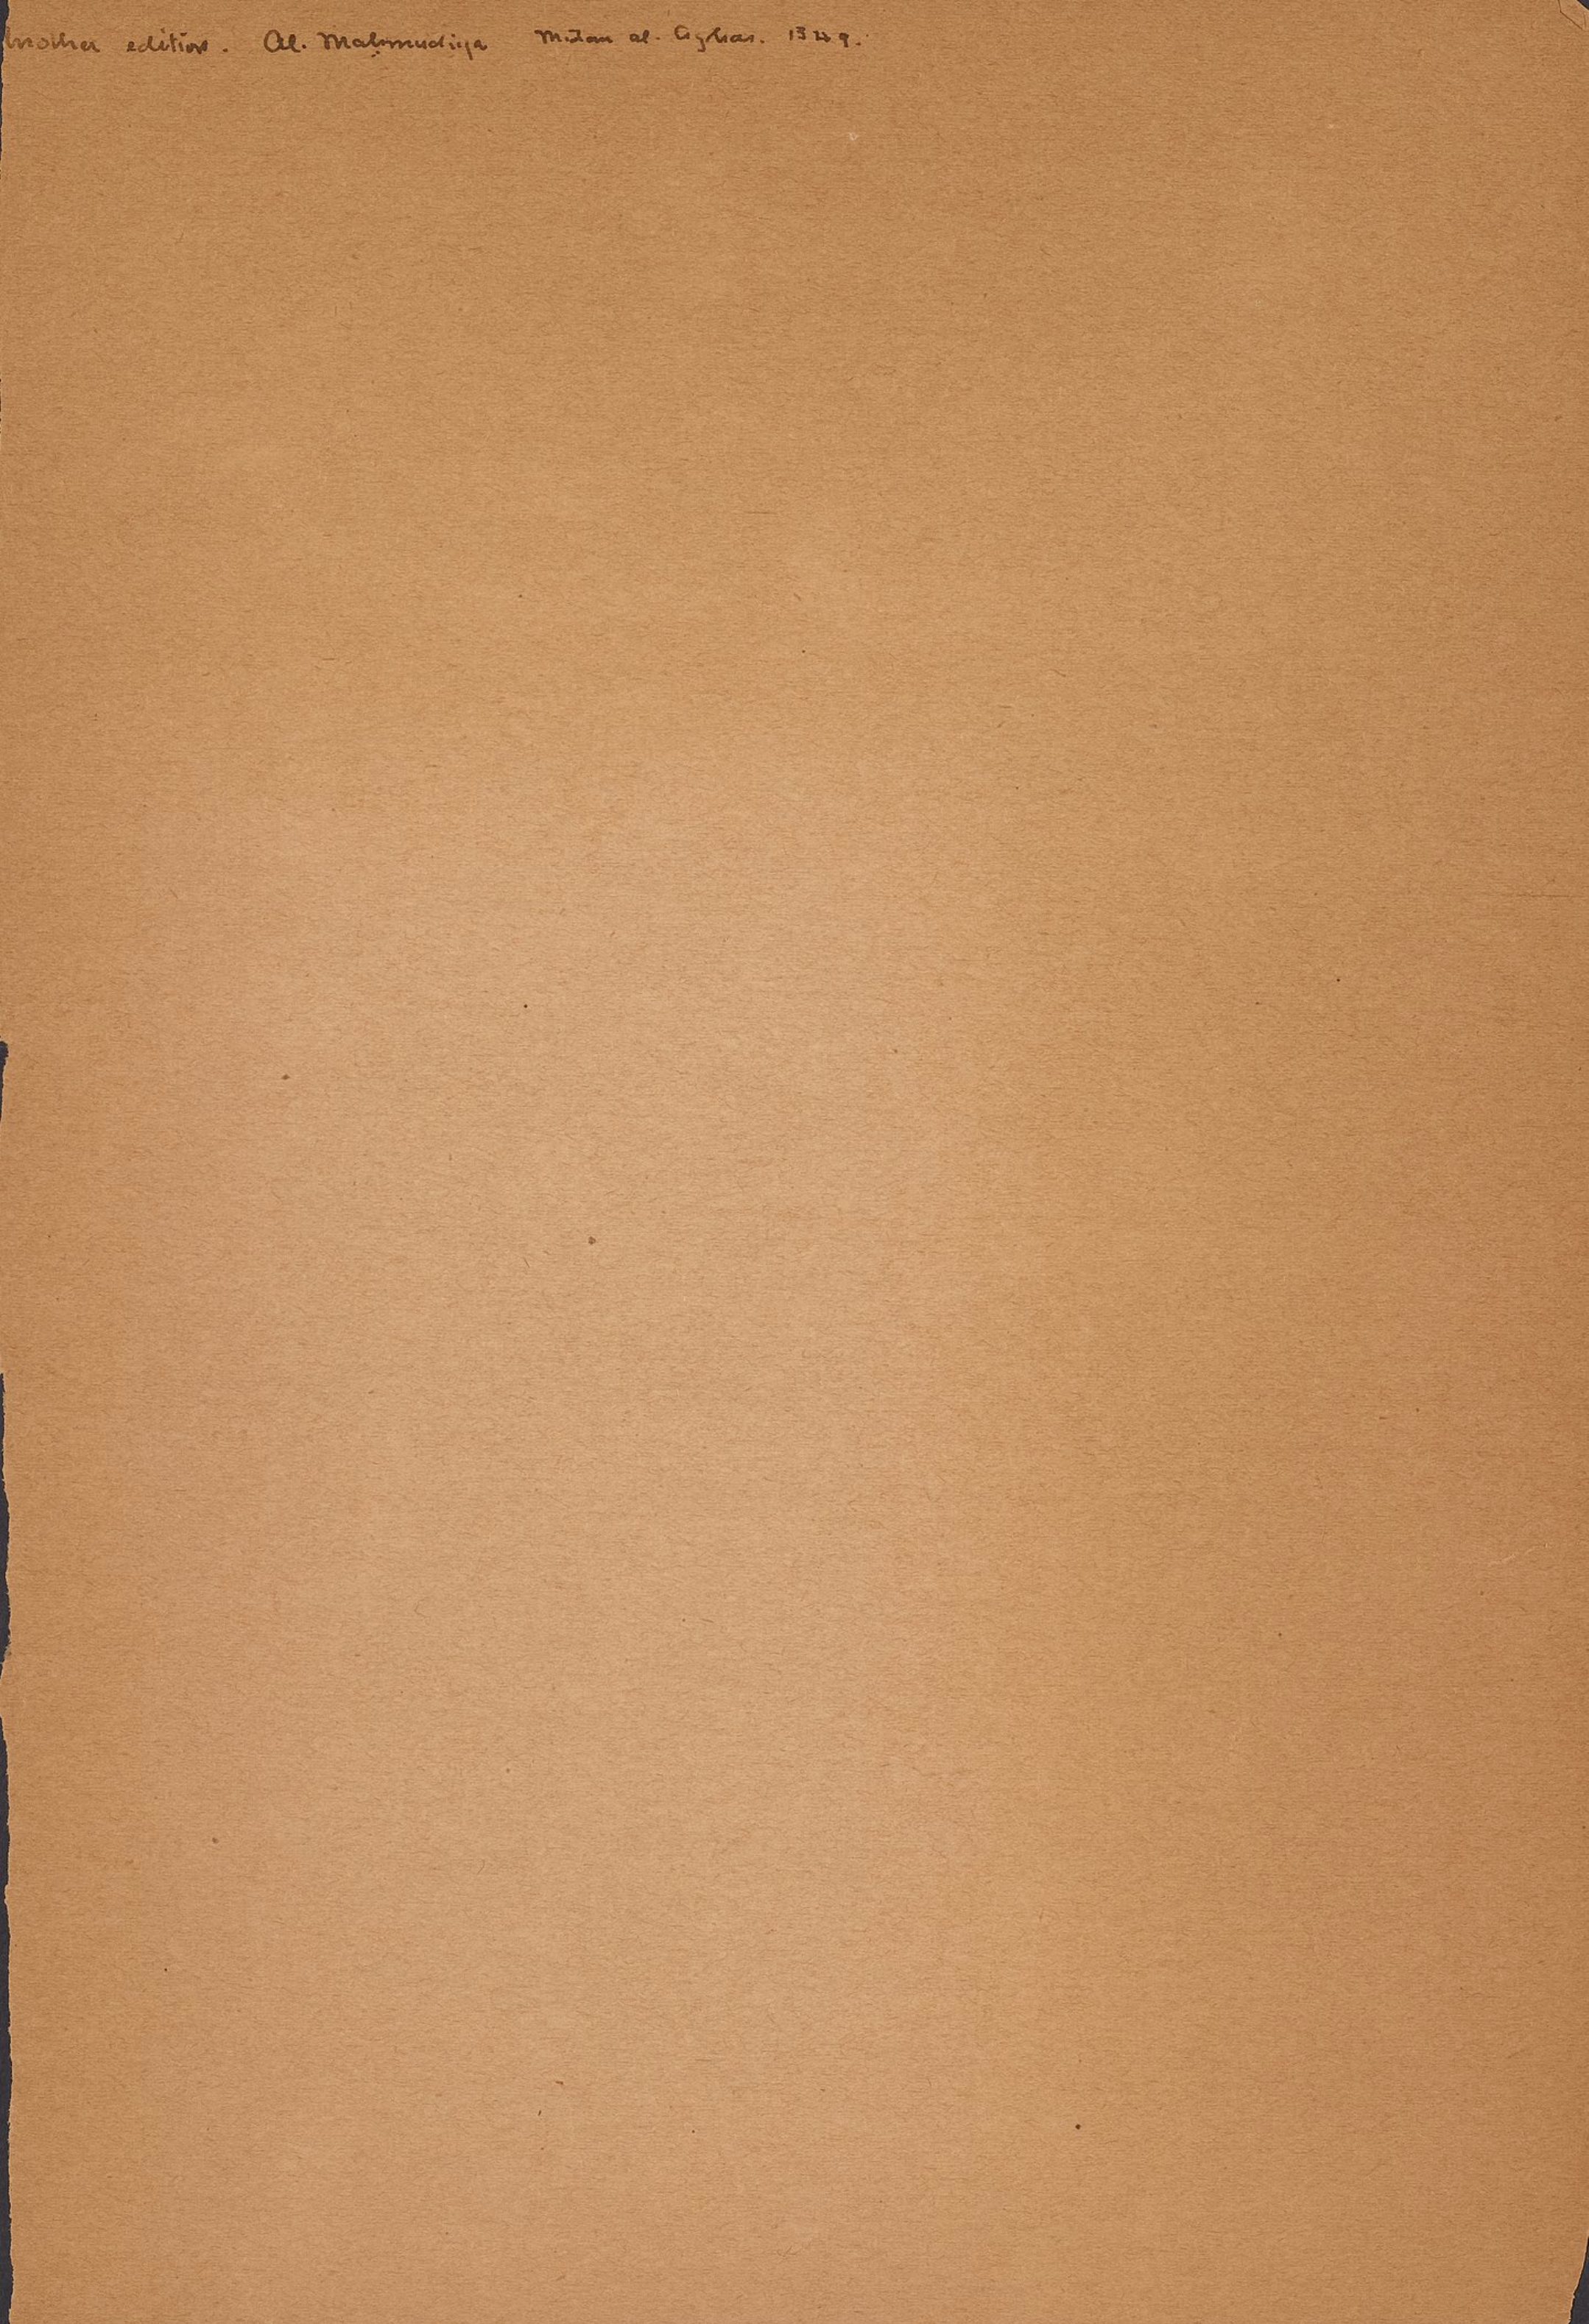 Another edition. Al. Mahmudiya Midan al. Azhar.